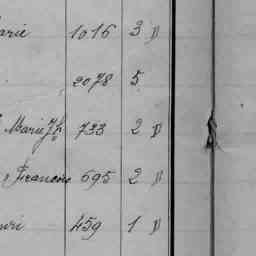 arie 1016 3 »
2078 5
Marie Jh 733 2 »
François 695 2 »
nri 459 1 »